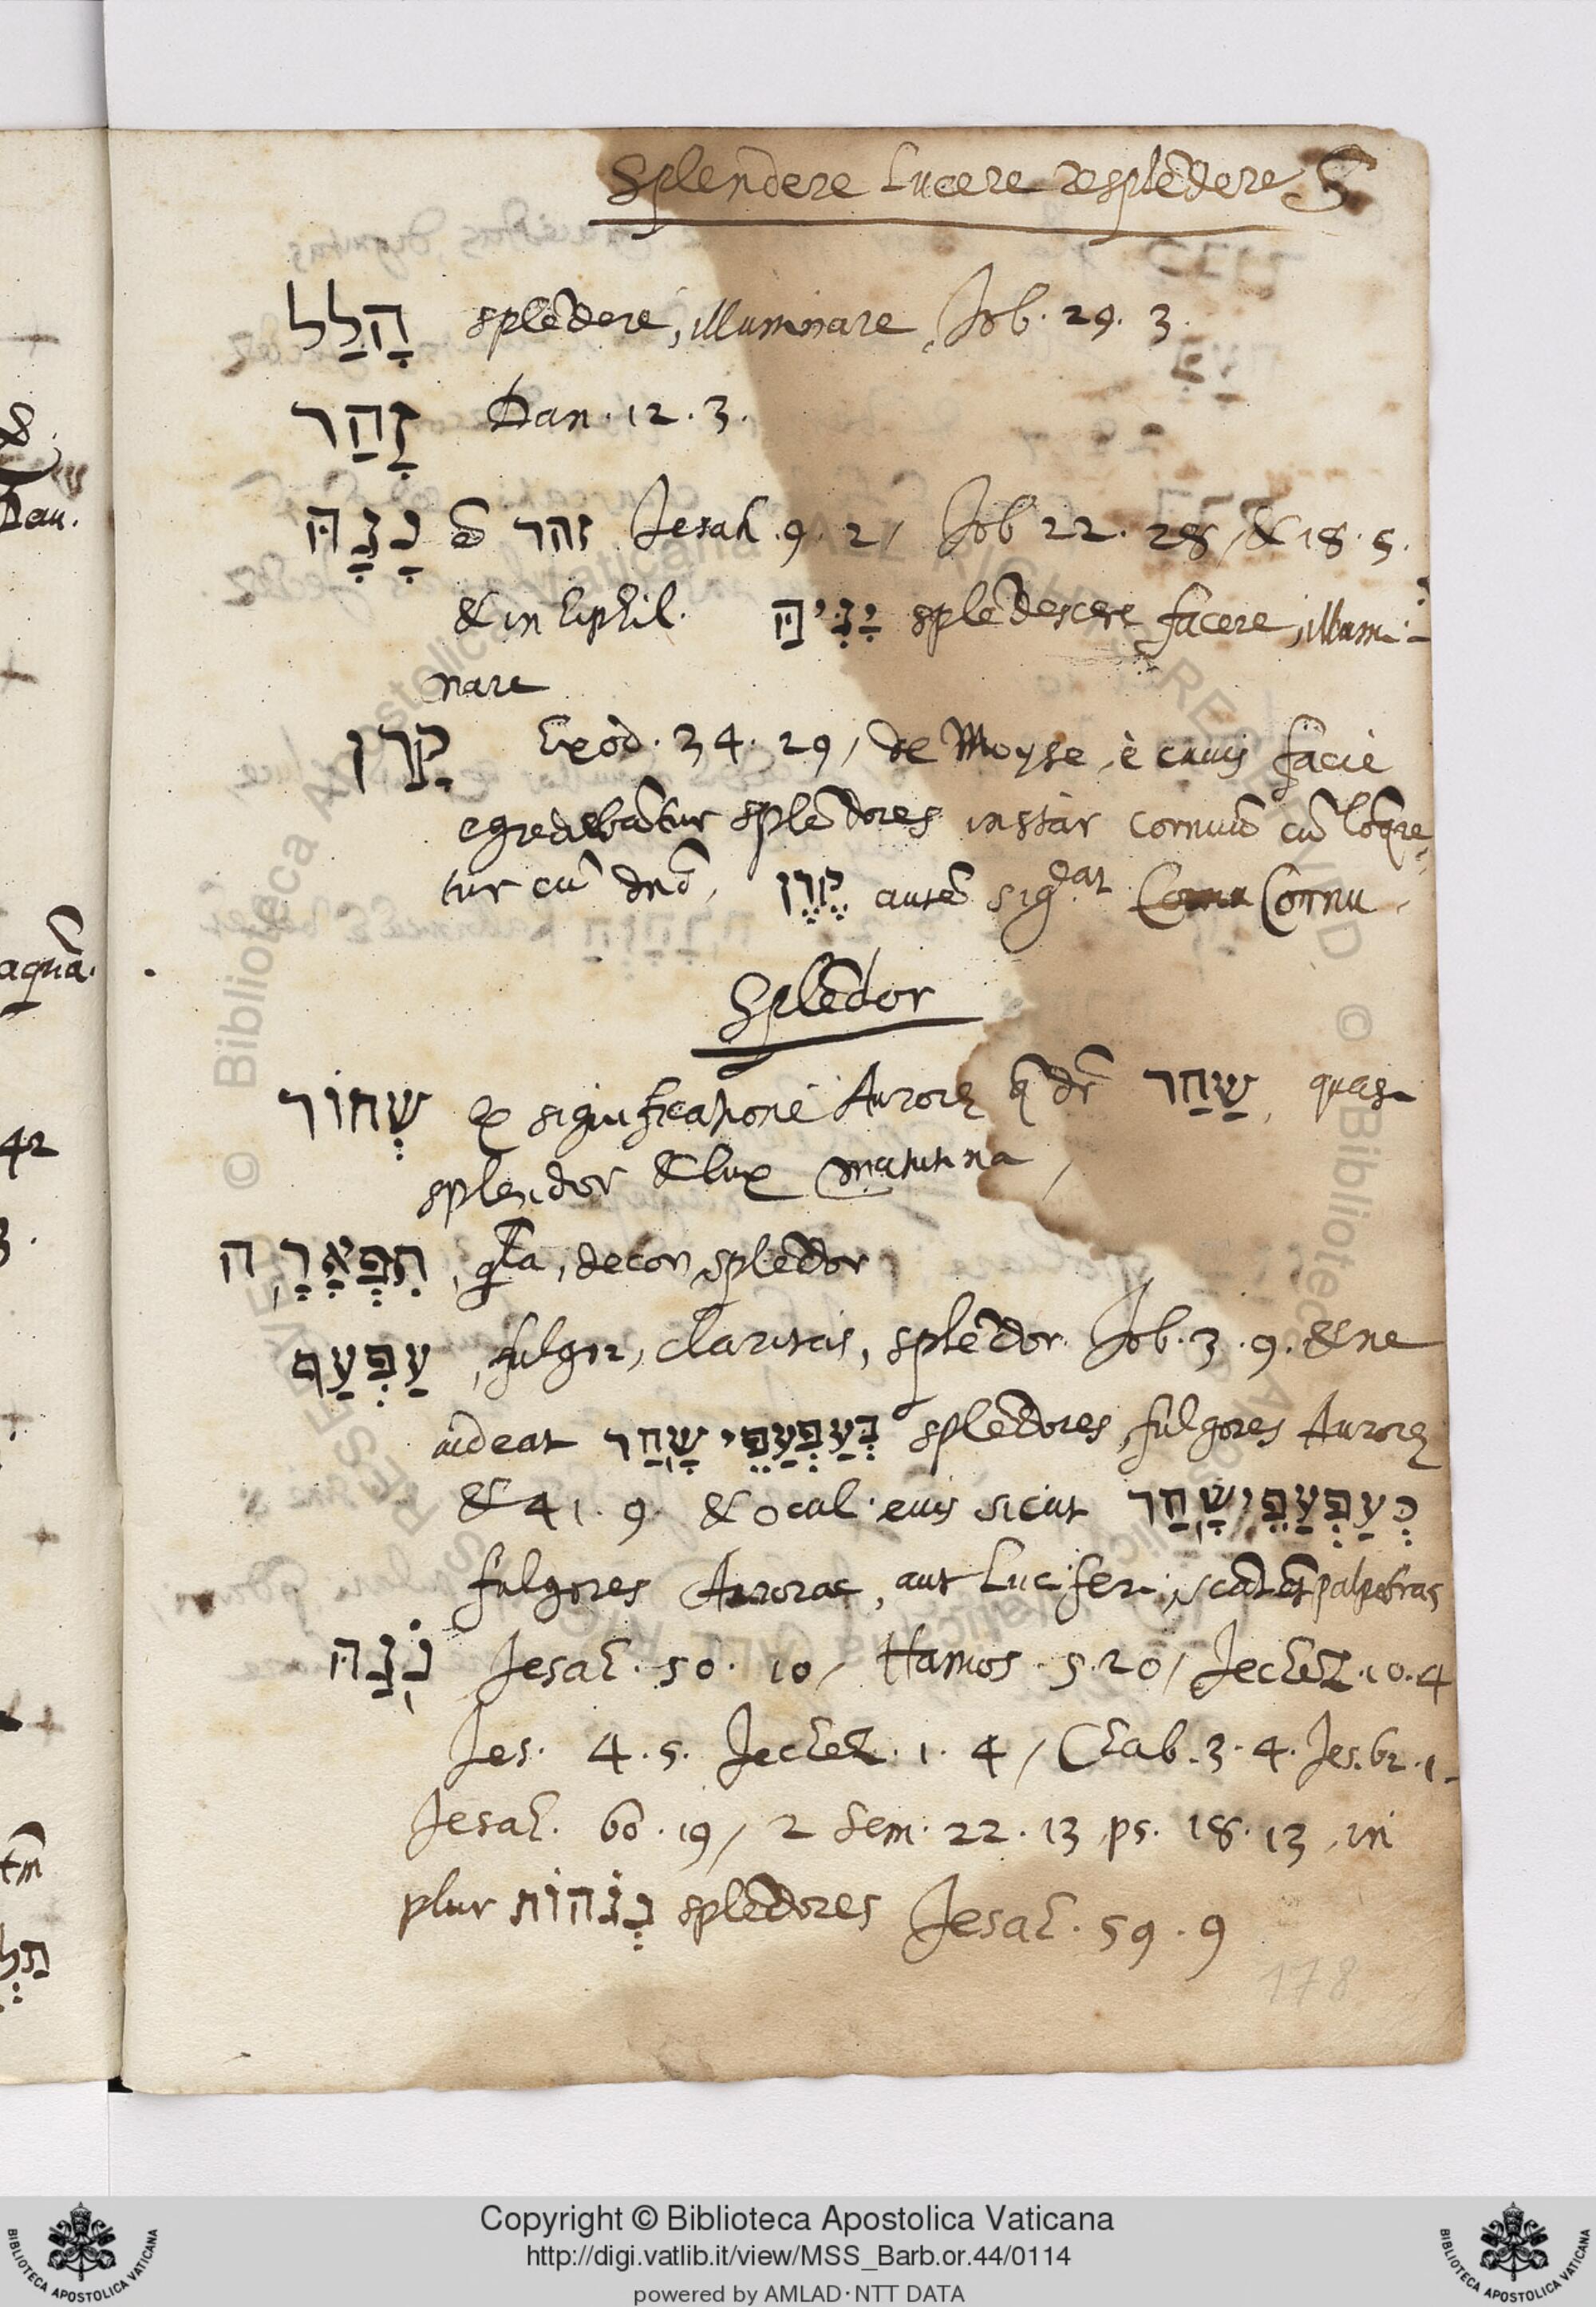 Splendere Lucere resplēdere S
הָלַל splēdere, illuminare, Job. 29. 3.
זָהַר Dan. 12. 3.
נָגָהּ זהר Jesah. 9. 2, Job 22. 28, & 18. 5.
& in hiphil. יַגִּיהַּ splēdescere facere, illumi-
nare
קָרַן Exod. 34. 29, de Moyse, è cuius facie
egrediebātur splēdores instar cornuū cū loque-
tur cū dnō, קֶרֶן autē sig.at Cornu Cornu.
Splēdor
שְׁחוֹר ex significatione Auroræ שַׁחַר, quasi
splendor & lux matutina,
תִפְאָרָה, gl̄a, decor, splēdor
עַפְעַף, fulgor, claritas, splēdor. Job. 3. 9. & ne
uideat בְּעַפְעַפֵּי שָׁחַר splēdores, fulgores Auroræ
& 41. 9. & ocul. eius sicut כְּעַפְעַפֵּי שָׁחַר
fulgores Aurorae, aut Luciferi, palpebras
נֹגַהּ Jesah. 50. 10, Hamos. 5. 20, Jechez. 10. 4
Jes. 4. 5. Jechez. 1. 4, Chab. 3. 4. Jes. 62. 1.
Jesah. 60. 19, 2 Sem. 22. 13 ps. 18. 13, in
plur נְגֹהוֹת splēdores Jesah. 59. 9
178
Dan.
aquā.
42
3.
Copyright © Biblioteca Apostolica Vaticana
http://digi.vatlib.it/view/MSS_Barb.or.44/0114
powered by AMLAD·NTT DATA
BIBLIOTECA APOSTOLICA VATICANA
BIBLIOTECA APOSTOLICA VATICANA